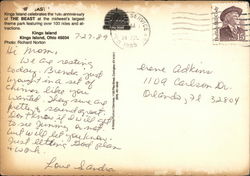 THE BEAST
Kings Island celebrates the tenth anniversary
of THE BEAST at the midwest's largest
theme park featuring over 100 rides and at-
tractions.
Kings Island
Kings Island, Ohio 45034
Photo: Richard Norton
7-27-89
Hi Mom,
We are resting
today. Brenda just
bought me a set of
chimes like you
wanted. They sure are
pretty & sound great.
Don't know if I will get
to see Jimmy or not
but will let you know.
Just letting God plan
& work.
Love Sandra
Irene Adkins
1109 Carlson Dr.
Orlando, Fl 32804